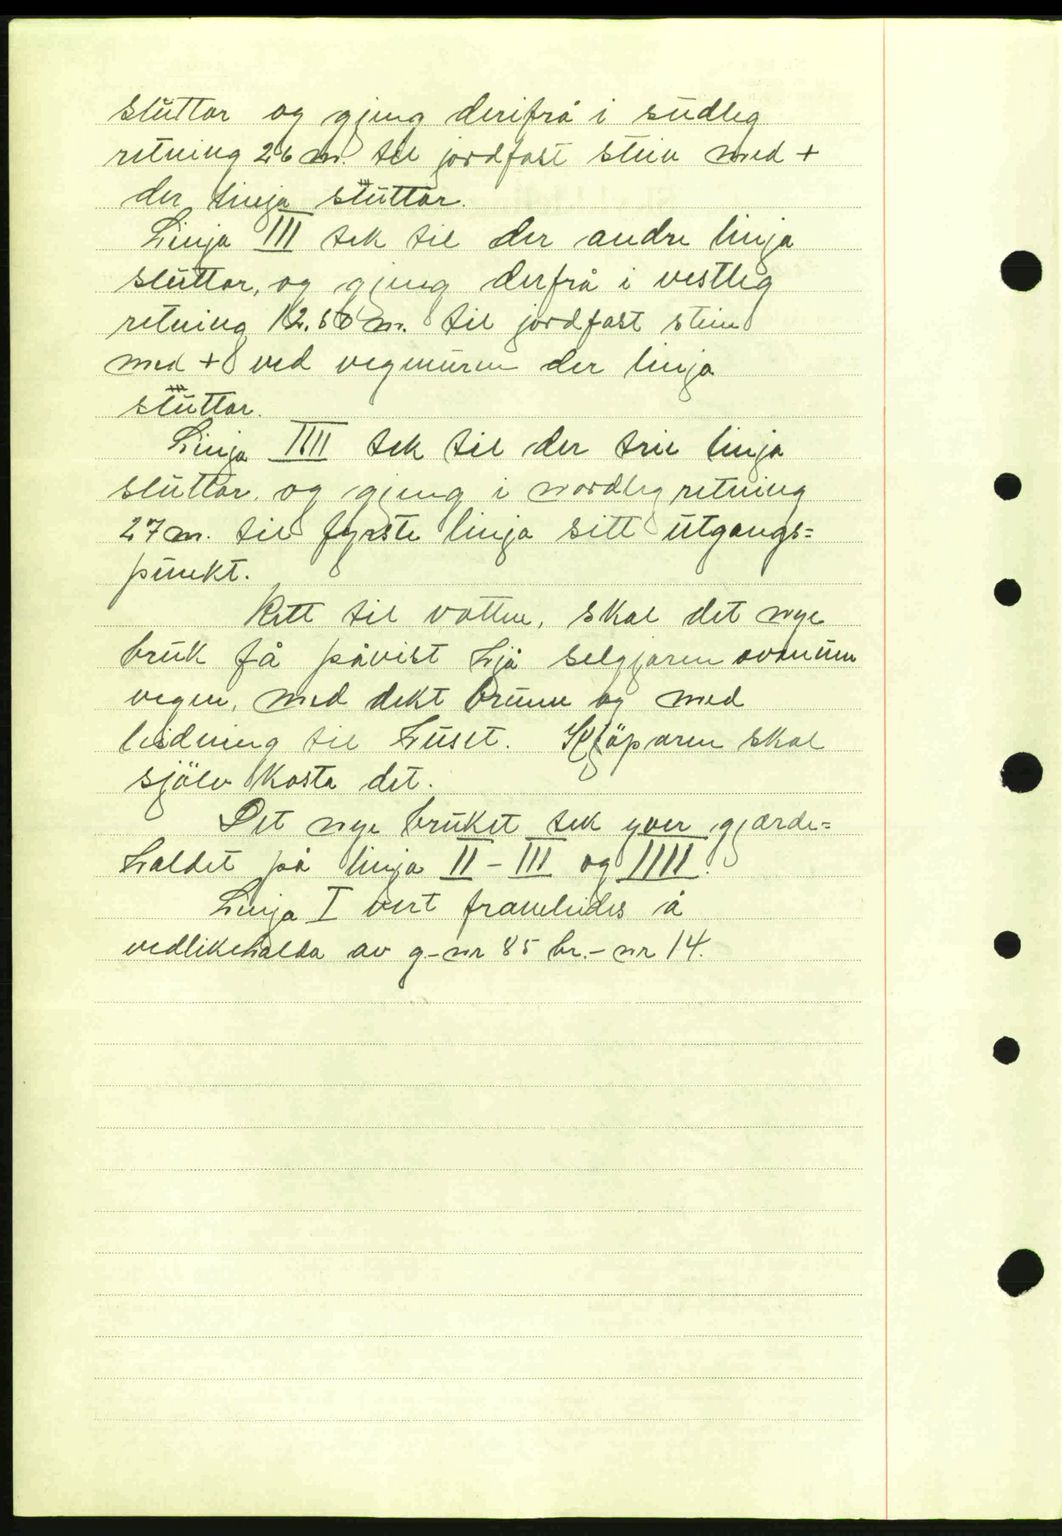 sluttar og gjeng derifrå i sudleg
retning 26 m. til jordfast stein med +
der linja sluttar.
Linja III tek til der andre linja
sluttar, og gjeng derfrå i vestleg
retning 12,50 m. til jordfast stein
med + ved vegmuren der linja
sluttar.
Linja IIII tek til der trie linja
sluttar, og gjeng i nordleg retning
27 m. til fyrste linja sitt utgangs=
punkt.
Rett til vatten, skal det nye
bruk få påvist hjå selgjaren ovanum
vegen, med dekt brunn og med
leidning til huset. Kjöparen skal
sjölv kosta det.
Det nye bruket tek yver gjærde=
haldet på linja II - III og IIII.
Linja I vert frameleides å
vedlikehalda av g-nr 85 br.-nr 14.